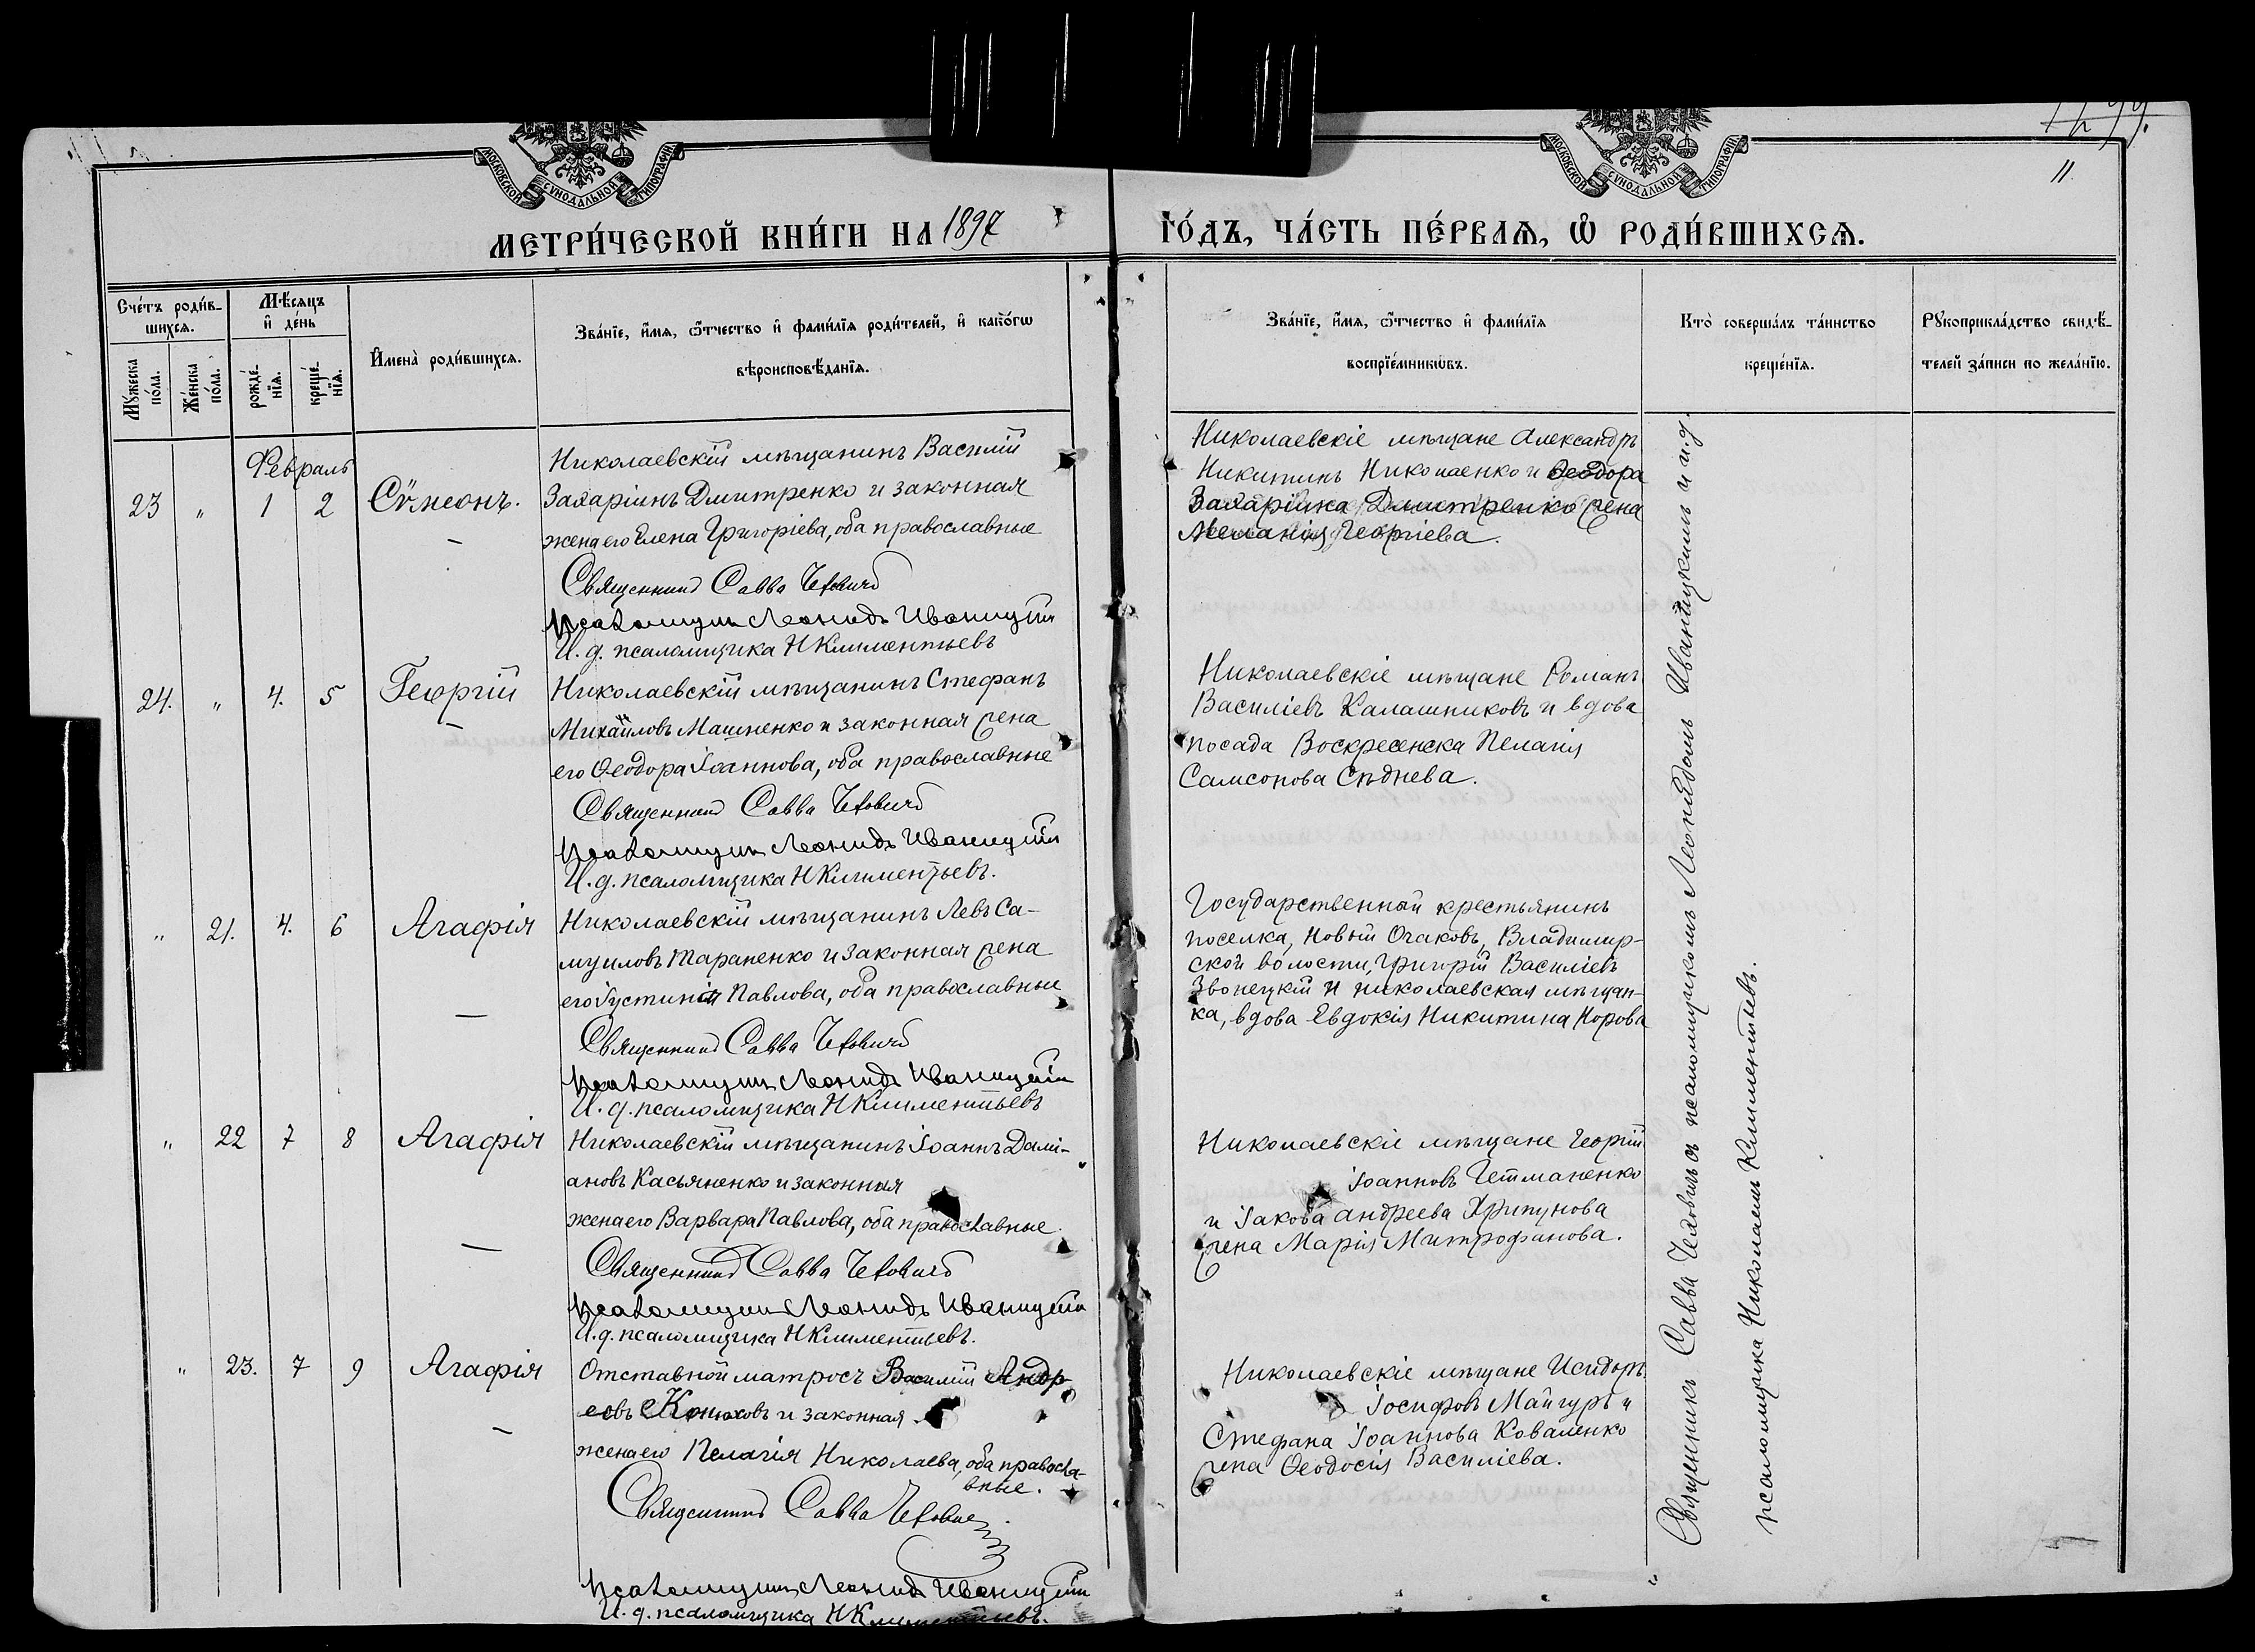 МОСКОВСКОЙ СѴНОДАЛЬНОЙ ТИПОГРАФІИ
МОСКОВСКОЙ СѴНОДАЛЬНОЙ ТИПОГРАФІИ
11.
МЕТРИ́ЧЕСКОЙ КНИ́ГИ НА 1897
ГО́ДЪ, ЧА́СТЬ ПЕ́РВАѦ, Ѡ҆ РОДИ́ВШИХСѦ.
Сче́тъ роди́в-
шихсѧ.
Мѣ́сѧцъ
и҆ де́нь
Мꙋ́жеска
по́ла.
Же́нска
по́ла.
рожде́-
нїѧ.
креще́-
нїѧ.
И҆мена̀ роди́вшихсѧ.
Зва́нїе, и҆́мѧ, ѻ҆́тчество и҆ фами́лїѧ роди́телей, и҆ како́гѡ
вѣроисповѣ́данїѧ.
Зва́нїе, и҆́мѧ, ѻ҆́тчество и҆ фами́лїѧ
воспрїе́мникѡвъ.
Кто̀ соверша́лъ та́инство
креще́нїѧ.
Рꙋкоприкла́дство свидѣ́-
телей за́писи по жела́нїю.
Февраль
23 " 1 2 Сѵмеонъ.
Николаевскій мѣщанинъ Василій
Захаріинъ Дмитренко и законная
жена его Елена Григоріева, оба православные
Священникъ Савва Чехович
Псаломщикъ Леонидъ Иваницкій
И. д. псаломщика Н Климентьевъ
Николаевскіе мѣщане Александръ
Никитинъ Николаенко и Ѳеодора
Захаріина Дмитренко жена
Меланія Георгіева.
24. " 4. 5 Георгій
Николаевскій мѣщанинъ Стефанъ
Михайловъ Машненко и законная жена
его Ѳеодора Іоаннова, оба православные
Священникъ Савва Чехович
Псаломщикъ Леонидъ Иваницкій
И. д. псаломщика Н Климентьевъ.
Николаевскіе мѣщане Романъ
Василіевъ Калашниковъ и вдова
посада Воскресенска Пелагія
Самсонова Сѣднева.
" 21. 4. 6 Агафія
Николаевскій мѣщанинъ Левъ Са-
муиловъ Тараненко и законная жена
его Іустинія Павлова, оба православные
Священникъ Савва Чехович
Псаломщикъ Леонидъ Иваницкій
И. д. псаломщика Н Климентьевъ
Государственный крестьянинъ
поселка, Новый Очаковъ, Владимир-
ской волости, Григорій Василіевъ
Звонецкій и николаевская мѣщан-
ка, вдова Евдокія Никитина Корова
" 22 7 8 Агафія
Николаевскій мѣщанинъ Іоаннъ Дамі-
ановъ Касьяненко и законная
жена его Варвара Павлова, оба православные.
Священникъ Савва Чехович
Псаломщикъ Леонидъ Иваницкій
И. д. псаломщика Н Климентьевъ.
Николаевскіе мѣщане Георгій
Іоанновъ Гетманенко
и Іакова Андреева Хрипунова
жена Марія Митрофанова.
" 23. 7 9 Агафія
Отставной матросъ Василій Андр-
еевъ Конюховъ и законная
жена его Пелагія Николаева, оба правосла-
вные.
Священникъ Савва Чехович
Псаломщикъ Леонидъ Иваницкій
И. д. псаломщика Н Климентьевъ.
Николаевскіе мѣщане Исидоръ
Іосифовъ Майгуръ и
Стефана Іоаннова Коваленко
жена Ѳеодосія Василіева.
Священникъ Савва Чеховичъ съ псаломщикомъ Леонидомъ Иваницкимъ и и. д.
псаломщика Николаемъ Климентьевъ.